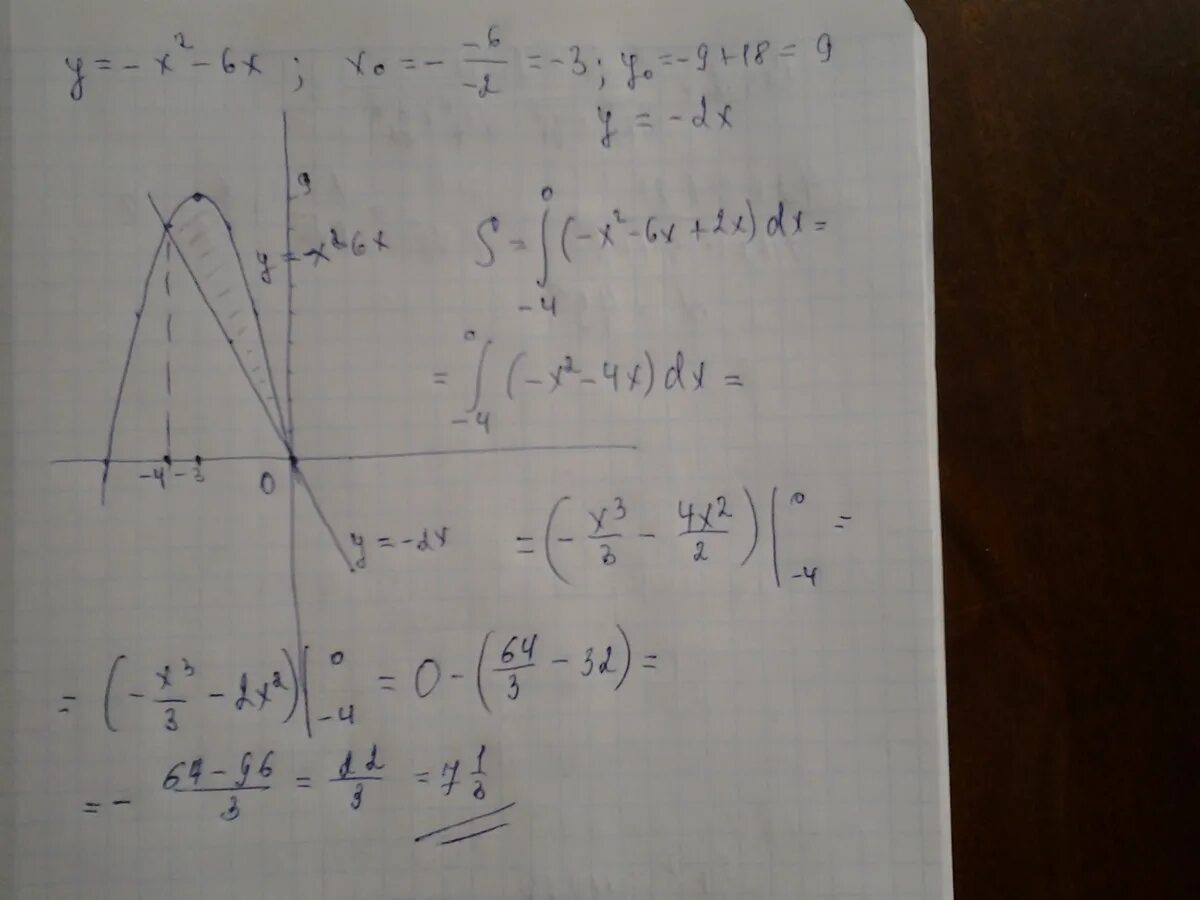 y = -x² - 6x ; x₀ = - -6/-2 = -3 ; y₀ = -9+18 = 9
y = -2x
9
y = -x² 6x
S = ∫₋₄⁰ (-x² - 6x + 2x) dx =
= ∫₋₄⁰ (-x² - 4x) dx =
-4 -3 0
y = -2x
= (- x³/3 - 4x²/2) |₋₄⁰ =
= (- x³/3 - 2x²) |₋₄⁰ = 0 - (64/3 - 32) =
= - 64-96/3 = 22/3 = 7 1/3